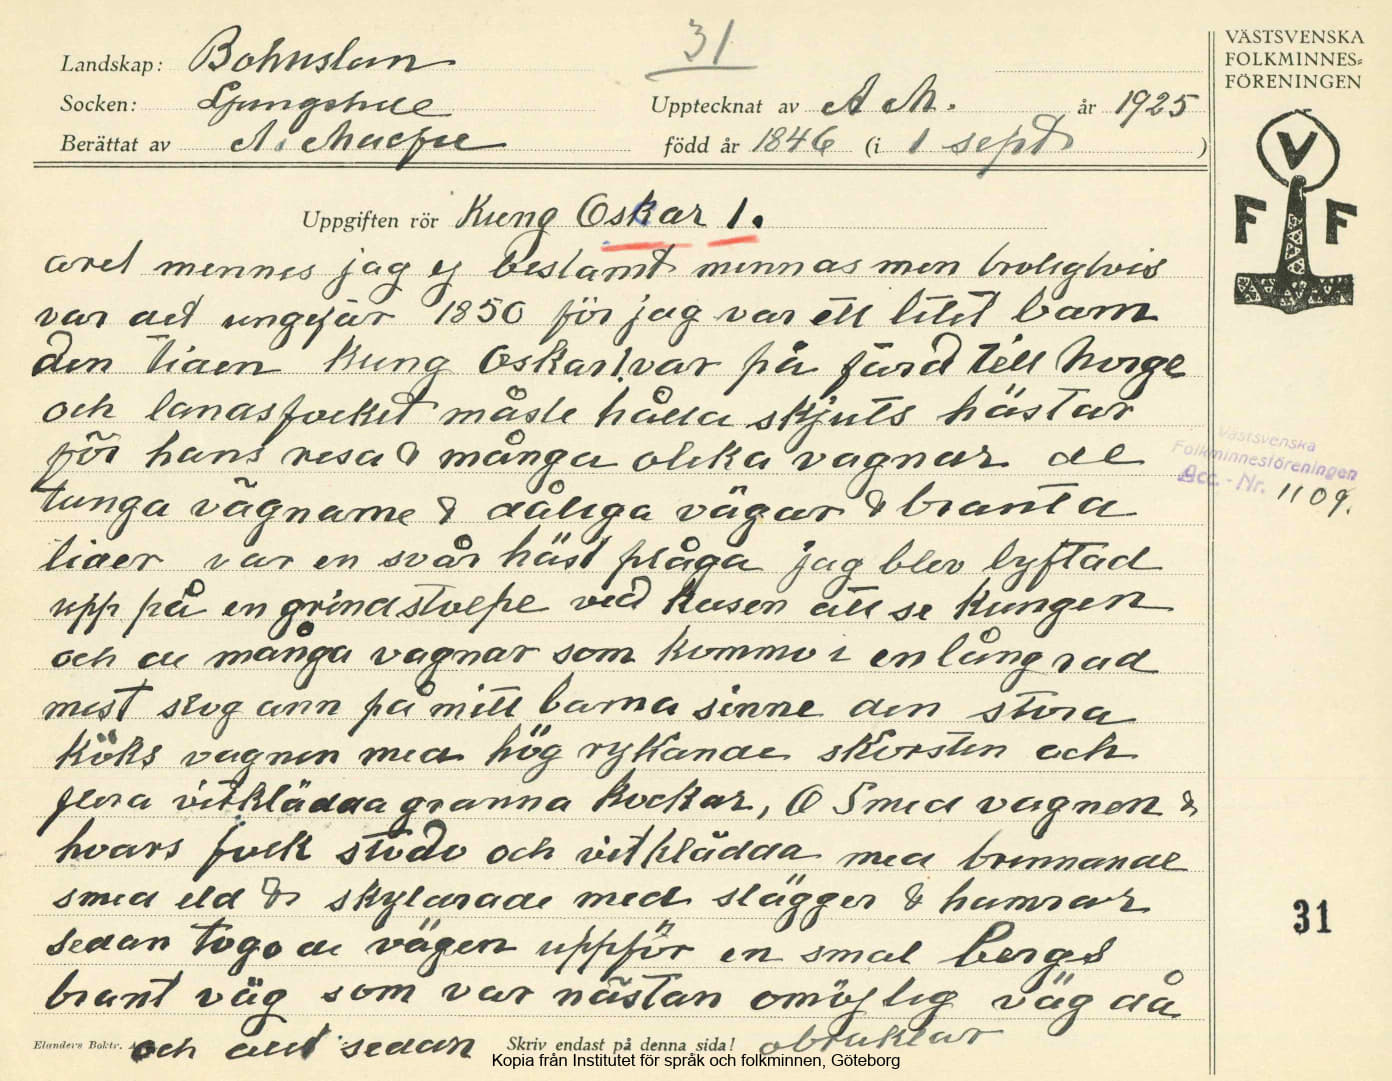 31
Landskap: Bohuslan
Socken: Ljungskile
Upptecknat av A M. år 1925
Berättat av A.
född år 1846 (i 1 sept )
VÄSTSVENSKA
FOLKMINNES-
FÖRENINGEN
V
F F
Uppgiften rör Kung Oskar 1.
aret mennes jag ej bestamt minnas men troligtvis
var det ungefär 1850 för jag var ett litet barn
den tiden Kung Oskar 1. var på färd till Norge
och landsfocket måste hålla skjuts hästar
för hans resa & många olika vagnar de
tunga vägnarne & dåliga vägar & branta
lider var en svår häst plåga jag blev lyftad
upp på en grindstolpe ved kusen att se kungen
och de många vagnar som kommo i en lång rad
mest slog ann på mitt barna sinne den stora
köks vagnen med hög rykande skorsten och
flera vitklädda granna kockar, O Smed vagnen &
hvars folk stodo och vitklädda med brennande
smed eld & skylarade med slägger & hamrar
sedan togo de vägen uppför en smal bergs
brant väg som var nästan omöjlig väg då
och att sedan obruklar
Västsvenska
Folkminnesföreningen
Acc. - Nr. 1109.
31
Elanders Boktr. A
Skriv endast på denna sida!
Kopia från Institutet för språk och folkminnen, Göteborg